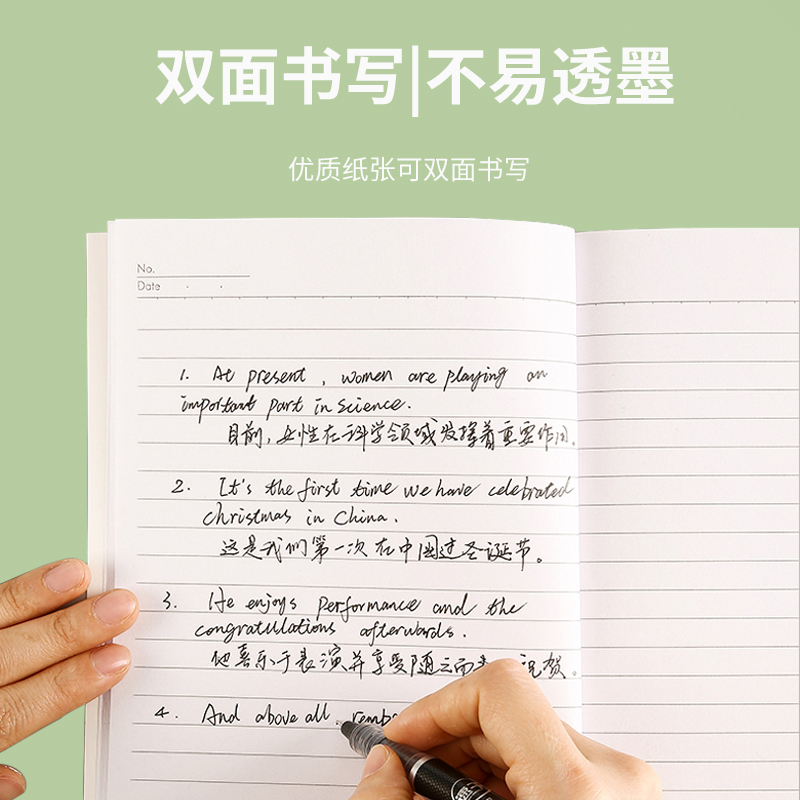 双面书写|不易透墨
优质纸张可双面书写
No.
Date
1. At present, women are playing an
important part in science.
目前,女性在科学领域发挥着重要作用。
2. It's the first time we have celebrated
christmas in China.
这是我们第一次在中国过圣诞节。
3. He enjoys performance and the
congratulations afterwards.
他喜乐于表演并享受随之而来 祝贺。
4. And above all,